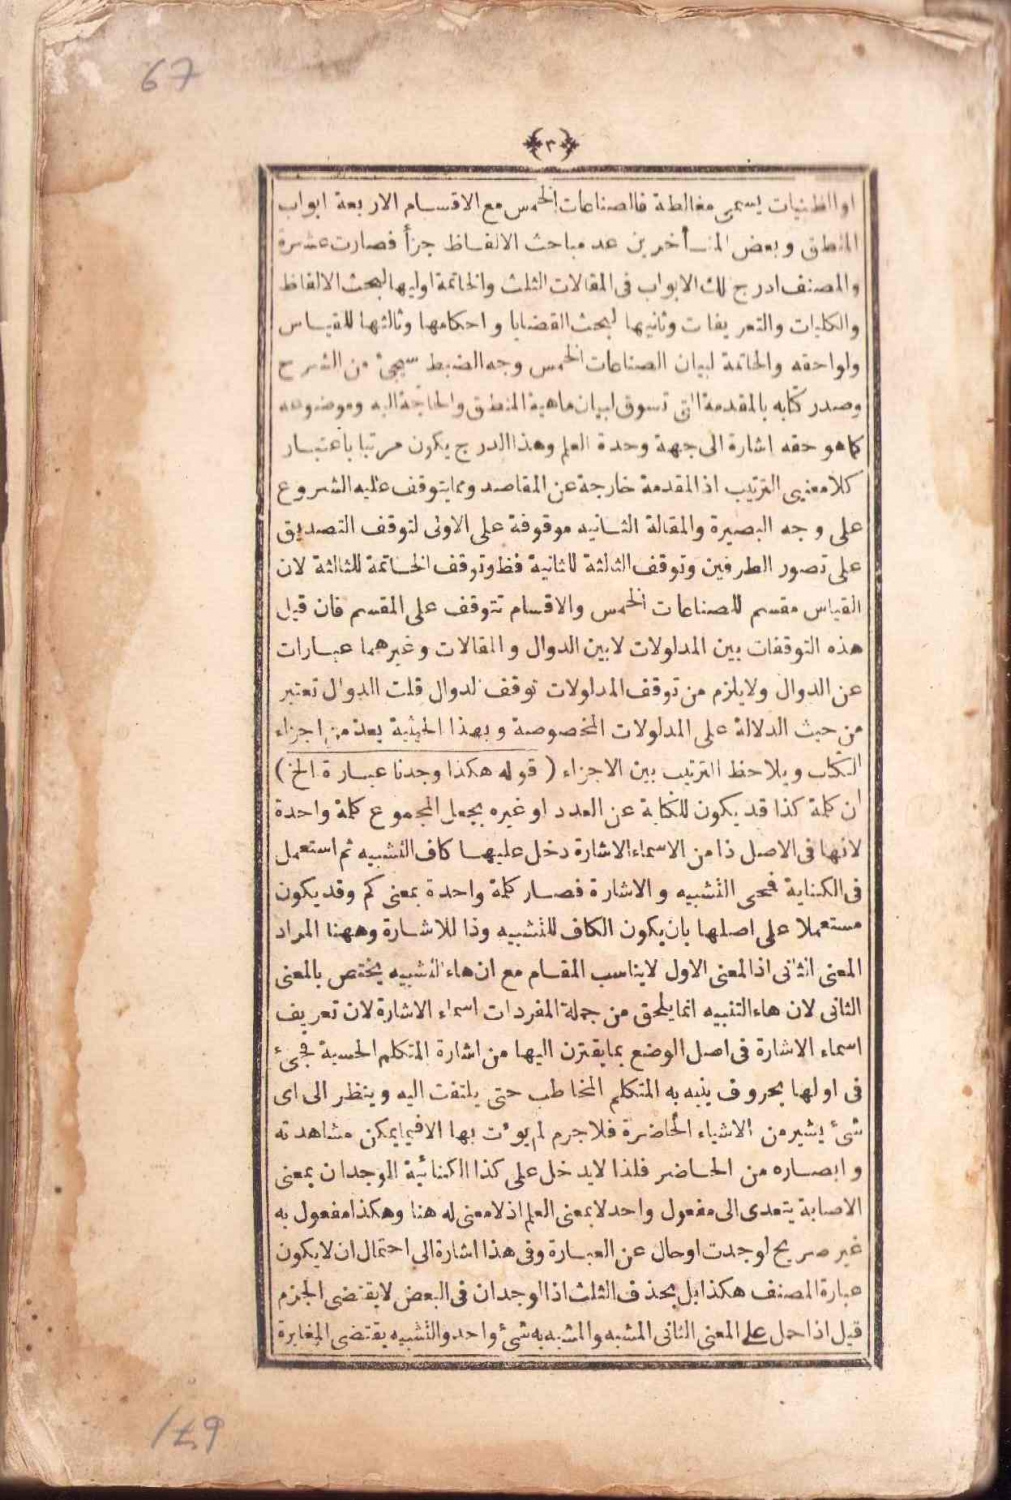 67
٣
او الظنيات يسمى مغالطة فالصناعات الخمس مع الاقسام الاربعة ابواب
المنطق وبعض المتأخرين عد مباحث الالفاظ جزأ فصارت عشرة
والمصنف ادرج تلك الابواب فى المقالات الثلث والخاتمة اوليها لبحث الالفاظ
والكليات والتعريفات وثانيها لبحث القضايا واحكامها وثالثها للقياس
ولواحقه والخاتمة لبيان الصناعات الخمس وجه الضبط سيجئ من الشرح
وصدر كتابه بالمقدمة التى تسوق لبيان ماهية المنطق والحاجة اليه وموضوعه
كما هو حقه اشارة الى جهة وحدة العلم وهذا الدرج يكون مرتبا باعتبار
كلا معنيى الترتيب اذ المقدمة خارجة عن المقاصد ومما يتوقف عليه الشروع
على وجه البصيرة والمقالة الثانيه موقوفة على الاولى لتوقف التصديق
على تصور الطرفين وتوقف الثالثة للثانية فظ وتوقف الخاتمة للثالثة لان
القياس مقسم للصناعات الخمس والاقسام تتوقف على المقسم فان قيل
هذه التوقفات بين المدلولات لا بين الدوال والمقالات وغيرهما عبارات
عن الدوال ولا يلزم من توقف المدلولات توقف الدوال قلت الدوال تعتبر
من حيث الدلالة على المدلولات المخصوصة وبهذا الحيثية يعد من اجزاء
الكتاب ويلاحظ الترتيب بين الاجزاء ( قوله هكذا وجدنا عبارة الخ )
ان كلمة كذا قد يكون للكناية عن العدد او غيره بجعل المجموع كلمة واحدة
لانها فى الاصل ذا من الاسماء الاشارة دخل عليها كاف التشبيه ثم استعمل
فى الكناية فمحى التشبيه والاشارة فصار كلمة واحدة بمعنى كم وقد يكون
مستعملا على اصلها بان يكون الكاف للتشبيه وذا للاشارة وههنا المراد
المعنى الثانى اذ المعنى الاول لا يناسب المقام مع ان هاء التشبيه يختص بالمعنى
الثانى لان هاء التنبيه انما يلحق من جملة المفردات اسماء الاشارة لان تعريف
اسماء الاشارة فى اصل الوضع بما يقترن اليها من اشارة المتكلم الحسية فجئ
فى اولها بحروف ينبه به المتكلم المخاطب حتى يلتفت اليه وينظر الى اى
شئ يشير من الاشياء الحاضرة فلا جرم لم يؤت بها الا فيما يمكن مشاهدته
وابصاره من الحاضر فلذا لا يدخل على كذا الكنائية الوجدان بمعنى
الاصابة يتعدى الى مفعول واحد لا بمعنى العلم اذ لا معنى له هنا وهكذا مفعول به
غير صريح لوجدت او حال عن العبارة وفى هذا اشارة الى احتمال ان لا يكون
عبارة المصنف هكذا بل بحذف الثلث اذ الوجدان فى البعض لا يقتضى الجزم
قيل اذا حمل على المعنى الثانى المشبه والمشبه به شئ واحد والتشبيه يقتضى المغايرة